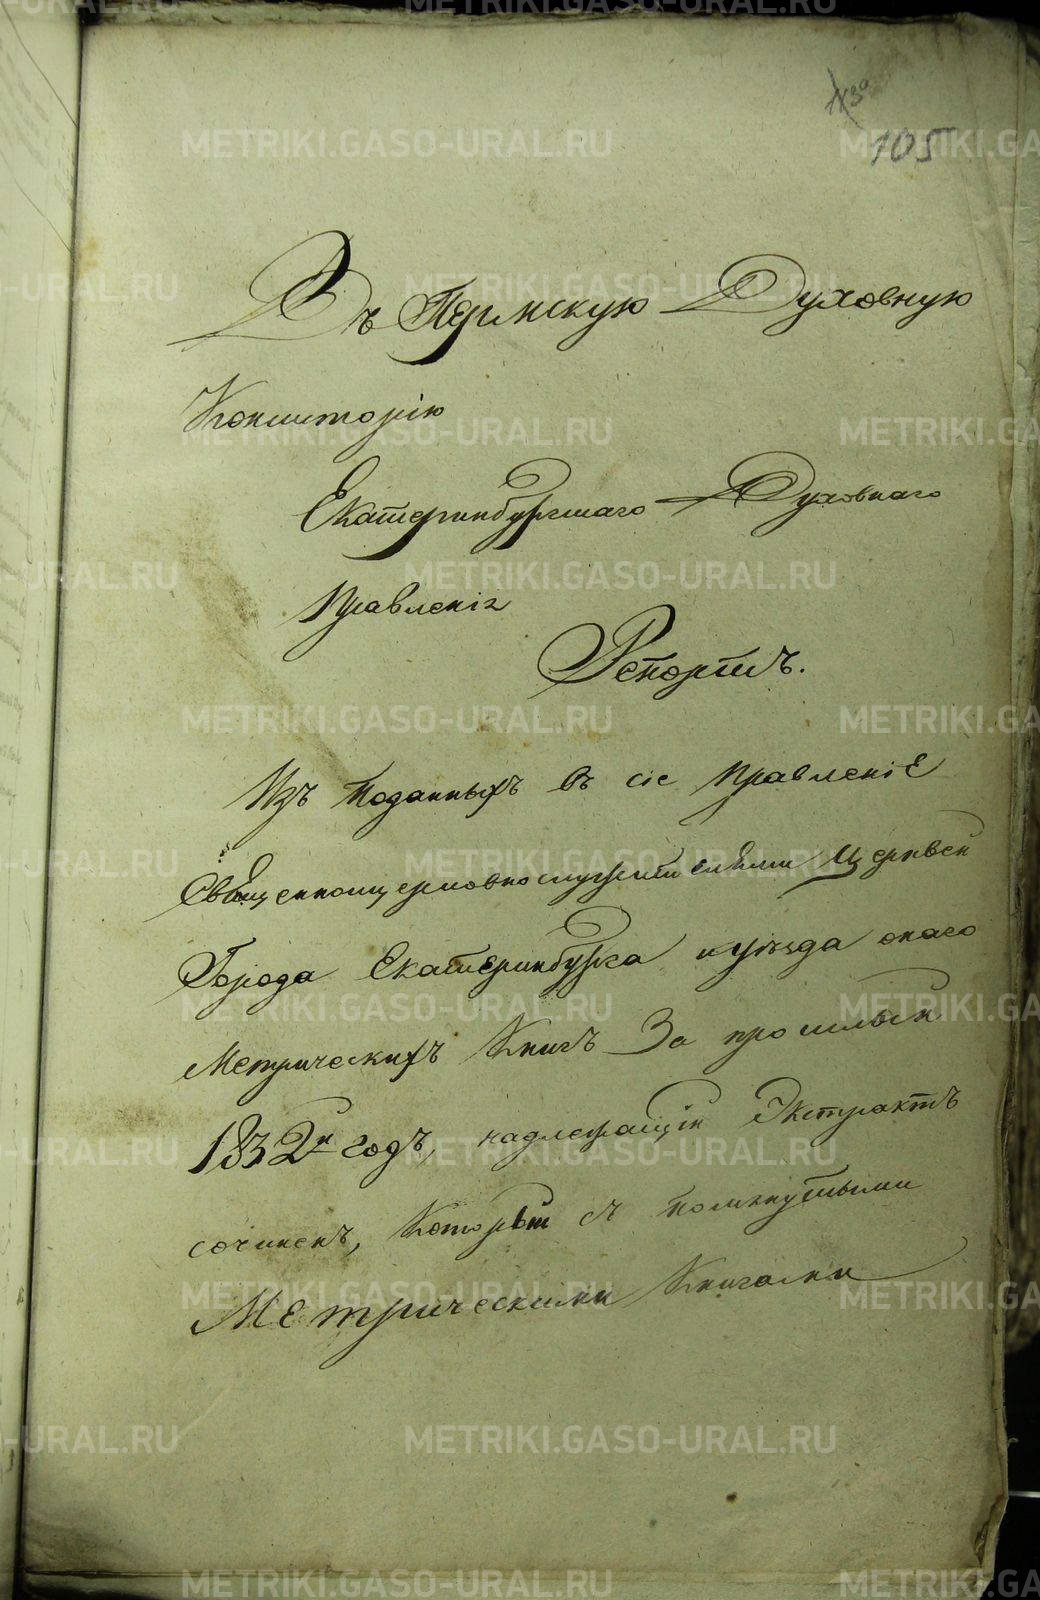 105
Въ Пермскую Духовную
Консисторію
Екатеринбургскаго Духовнаго
Правленія
Репортъ.
Изъ поданныхъ въ сіе Правленіе
Священноцерковнослужителями Церквей
Города Екатеринбурга и уѣзда онаго
Метрическихъ Книгъ За прошлый
1832й годъ, надлежащій Экстрактъ
сочиненъ, Который съ помянутыми
Метрическими Книгами
METRIKI.GASO-URAL.RU